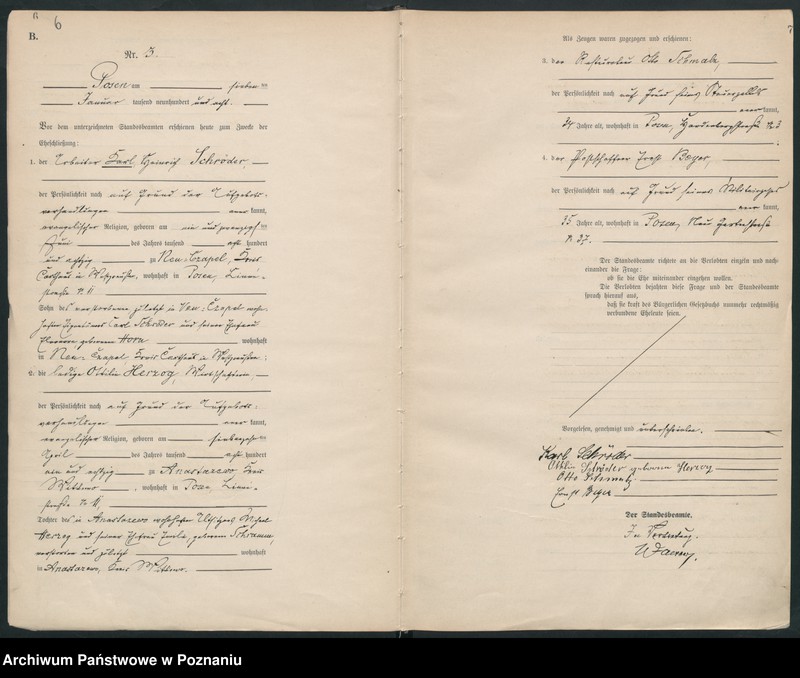 6
B.
Nr. 3.
Posen am sieben ten
Januar tausend neunhundert und acht.
Vor dem unterzeichneten Standesbeamten erschienen heute zum Zwecke der
Eheschließung:
1. der Arbeiter Karl Heinrich Schröder,
der Persönlichkeit nach auf Grund der Aufgebots-
verhandlungen kannt,
evangelischer Religion, geboren am und zwanzigsten
Juni des Jahres tausend acht hundert
und achtzig zu Neu-Czapel, Kreis
Carthaus in Westpreußen, wohnhaft in Posen,
straße
Sohn des verstorbenen zuletzt in Neu-Czapel wohn-
haften Carl Schröder und seiner Ehefrau
geborenen wohnhaft
in Neu-Czapel Kreis Carthaus in Westpreußen;
2. die ledige Ottilie Herzog, Wirtschafterin,
der Persönlichkeit nach auf Grund der Aufgebots-
verhandlungen kannt,
evangelischer Religion, geboren am siebenzehn ten
April des Jahres tausend acht hundert
und achtzig zu Anastazewo, Kreis
Witkowo, wohnhaft in Posen,
straße
Tochter des in Anastazewo wohnhaften Michael
Herzog und seiner Ehefrau geborenen Schramm,
verstorben und zuletzt wohnhaft
in Anastazewo, Kreis Witkowo.
7
Als Zeugen waren zugezogen und erschienen:
3. der Otto Schmalz,
der Persönlichkeit nach auf Grund seines Steuerzettels
kannt,
Jahre alt, wohnhaft in Posen,
4. der Postschaffner Ernst Beyer,
der Persönlichkeit nach auf Grund seines Militärpasses
kannt,
35 Jahre alt, wohnhaft in Posen, Neue Gartenstraße
N 37.
Der Standesbeamte richtete an die Verlobten einzeln und nach-
einander die Frage:
ob sie die Ehe miteinander eingehen wollen.
Die Verlobten bejahten diese Frage und der Standesbeamte
sprach hierauf aus,
daß sie kraft des Bürgerlichen Gesetzbuchs nunmehr rechtmäßig
verbundene Eheleute seien.
Vorgelesen, genehmigt und unterschrieben.
Karl Schröder
Ottilie Schröder geborene Herzog
Otto Schmalz
Ernst Beyer
Der Standesbeamte.
In Vertretung.
Archiwum Państwowe w Poznaniu